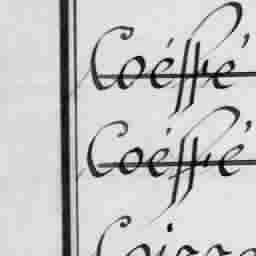 Coéffé
Coéffé